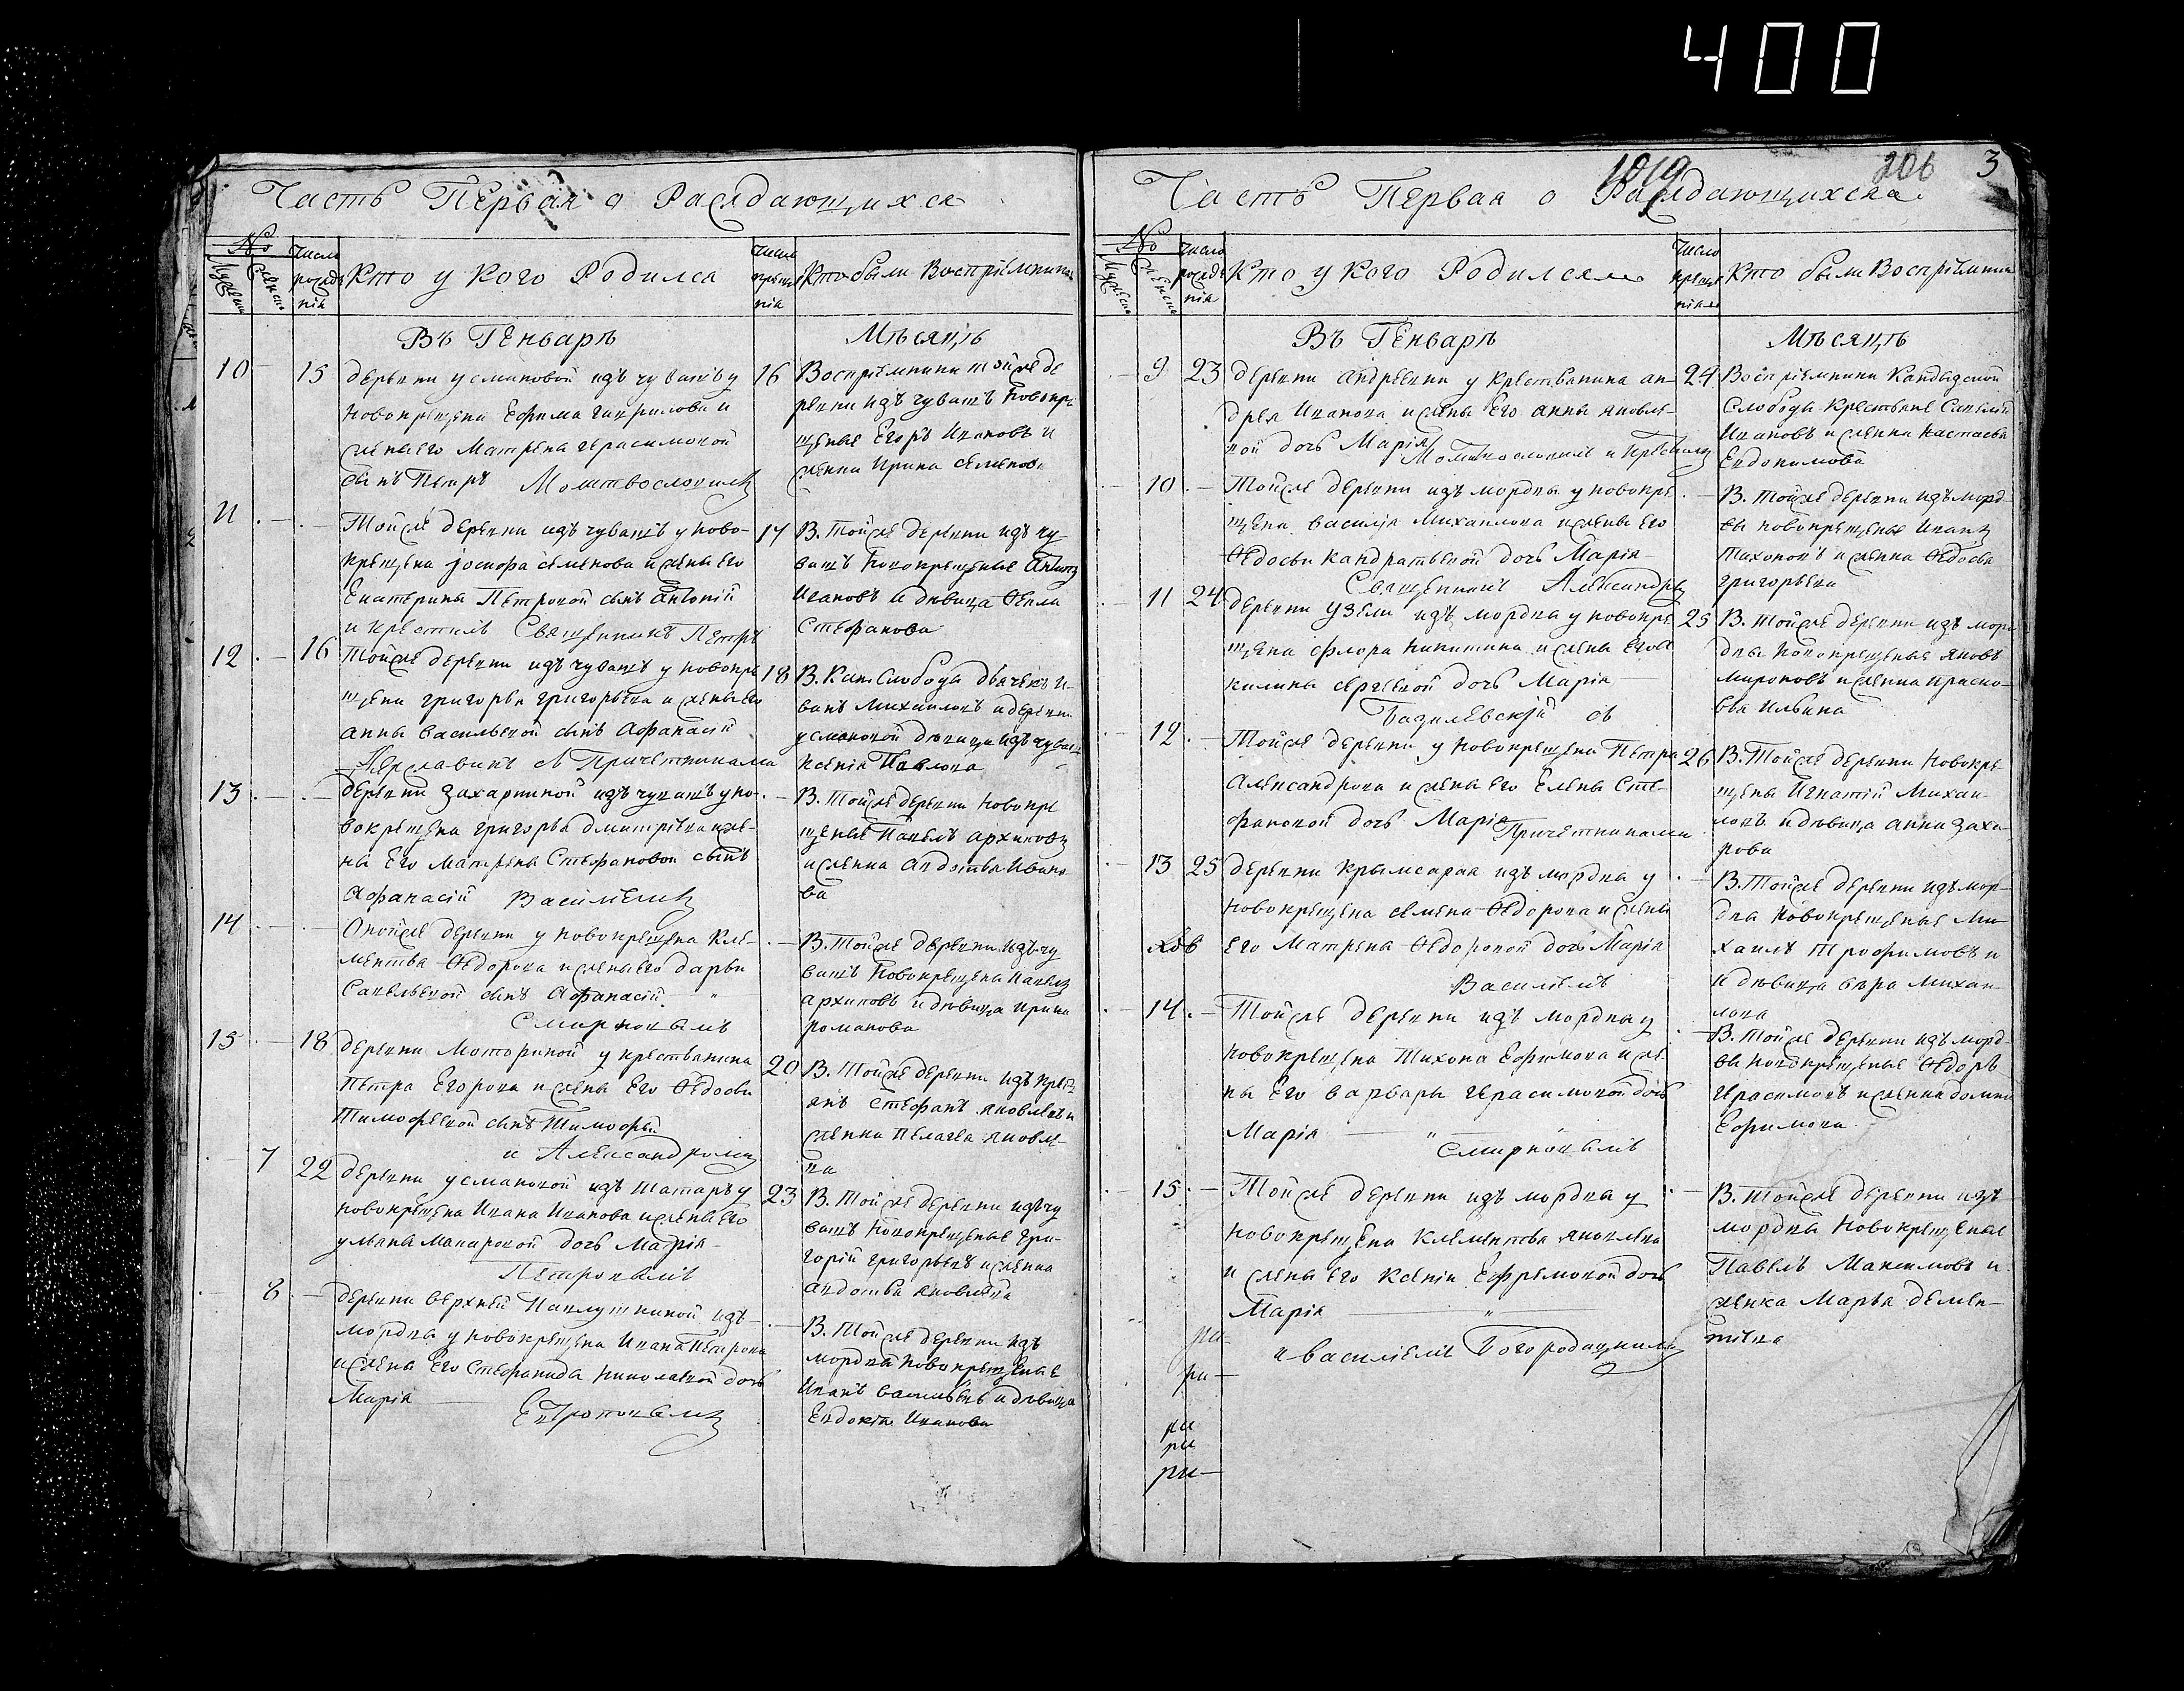 400
Часть Первая о Раждающихся
№
Мужеска
Женска
Число рожде нія
Кто у кого Родился
Число креще нія
Кто были Воспріемники
Въ Генваре
Месяце
10 15 деревни усмановой изъ чувашъ у 16
новокрещена Ефима гаврилова и
жены его Матрены герасимовой
сынъ Петръ Молитвословилъ
Воспріемники тойже де
ревни изъ чувашъ новокре
щеные Егоръ Ивановъ и
женка Ирина семенова
11 Тойже деревни изъ чувашъ у ново- 17
крещена іосифа семенова и жены его
Екатерины Петровой сынъ Антоній
и крестилъ Священникъ Петръ
В. тойже деревни изъ чу-
вашъ новокрещеные Антипъ
Ивановъ и девица Фекла
Стефанова
12 16 Тойже деревни изъ чувашъ у новокре 18
щена григорья григорьева и жены его
анны васильевой сынъ Афанасій
Державинъ с Причетниками
В. Кан слободы дьячекъ И-
ванъ Михаиловъ и деревни
усмановой девица изъ чувашъ
Ксенія Павлова
13 деревни Захаркиной изъ чувашъ у но-
вокрещена григорья дмитріева и же-
ны Его Матрены Стефановой сынъ
Афанасій Василіемъ
В. тойже деревни новокре
щеные Павелъ архиповъ
и женка авдотья Ивано
ва
14 Онойже деревни у новокрещена Кле-
ментья Федорова и жены его дарьи
Савельевой сынъ Афанасій
Смирновымъ
В. тойже деревни изъ чу
вашъ новокрещены Павелъ
архиповъ и девица ирина
романова
15 18 деревни Моториной у крестьянина 20
Петра Егорова и жены Его Федосьи
Тимофеевой сынъ Тимофей
и Александромъ
В. тойже деревни изъ крес
янъ Стефанъ яковлевъ и
женка Пелагея яковле-
ва
7 22 деревни усмановой изъ татаръ у 23
новокрещена Ивана Иванова и жены его
ульяны Макаровой дочь Марія
Петровымъ
В. Тойже деревни изъ чу
вашъ новокрещеные гри-
горій григорьевъ и женка
авдотья яковлева
8 деревни верхней Павлушкиной изъ
мордвы у новокрещена Ивана Петрова
и жены Его Стефаниды николаевой дочь
Марія
В. Тойже деревни изъ
мордвы новокрещеные
Иванъ васильевъ и девица
Евдокія Иванова
1019 206 3
Часть Первая о Раждающихся
№
Мужеска
Женска
Число рожде нія
Кто у кого Родился
Число креще нія
Кто были Воспріемники
Въ Генваре
Месяце
9 23 деревни андреевки у крестьянина ан- 24
дрея Иванова и жены Его анны яковле-
вой дочь Марія Молитвословилъ и крестилъ
Воспріемники Кандызской
Слободы крестьяне Савелій
Ивановъ и женка Настасья
Евдокимова
10 Тойже деревни изъ мордвы у новокре
щена василья Михаилова и жены Его
Федосьи Кандратьевой дочь Марія
Священникъ Александръ
В. тойже деревни изъ морд-
вы новокрещеные Иванъ
Тихоновъ и женка Федосья
григорьева
11 24 деревни Узели изъ мордвы у новокре 25
щена Флора никитина и жены Его а
килины сергеевой дочь Марія
Базилевскій съ
В. тойже деревни изъ мор
двы новокрещеные яковъ
мироновъ и женка праско-
вья Ильина
12 Тойже деревни у новокрещена Петра 26
Александрова и жены Его Елены Сте-
фановой дочь Марія Причетниками
В. Тойже деревни новокре
щены Игнатій Михаи-
ловъ и девица анна Заха-
рова
13 25 деревни крымсарая изъ мордвы у
новокрещена семена Федорова и жены
его Матрены Федоровой дочь Марія
Василіемъ
В. Тойже деревни изъ мор-
двы новокрещеные Ми-
хаилъ Трофимовъ и
и девица вера Михаи-
лова
14 Тойже деревни изъ мордвы у
новокрещена Тихона Ефимова и же
ны Его варвары герасимовой дочь
Марія Смирновымъ
В. Тойже деревни изъ морд-
вы новокрещеные Федоръ
герасимовъ и женка домна
Ефимова
15 Тойже деревни изъ мордвы у
новокрещена Клементья яковлева
и жены его Ксеніи Ефремовой дочь
Марія
и василіемъ Богородицкимъ
В. Тойже деревни изъ
мордвы новокрещеные
Павелъ Максимовъ и
женка Марья демен-
тіева
ри-
ри-
ри
ри
ри-